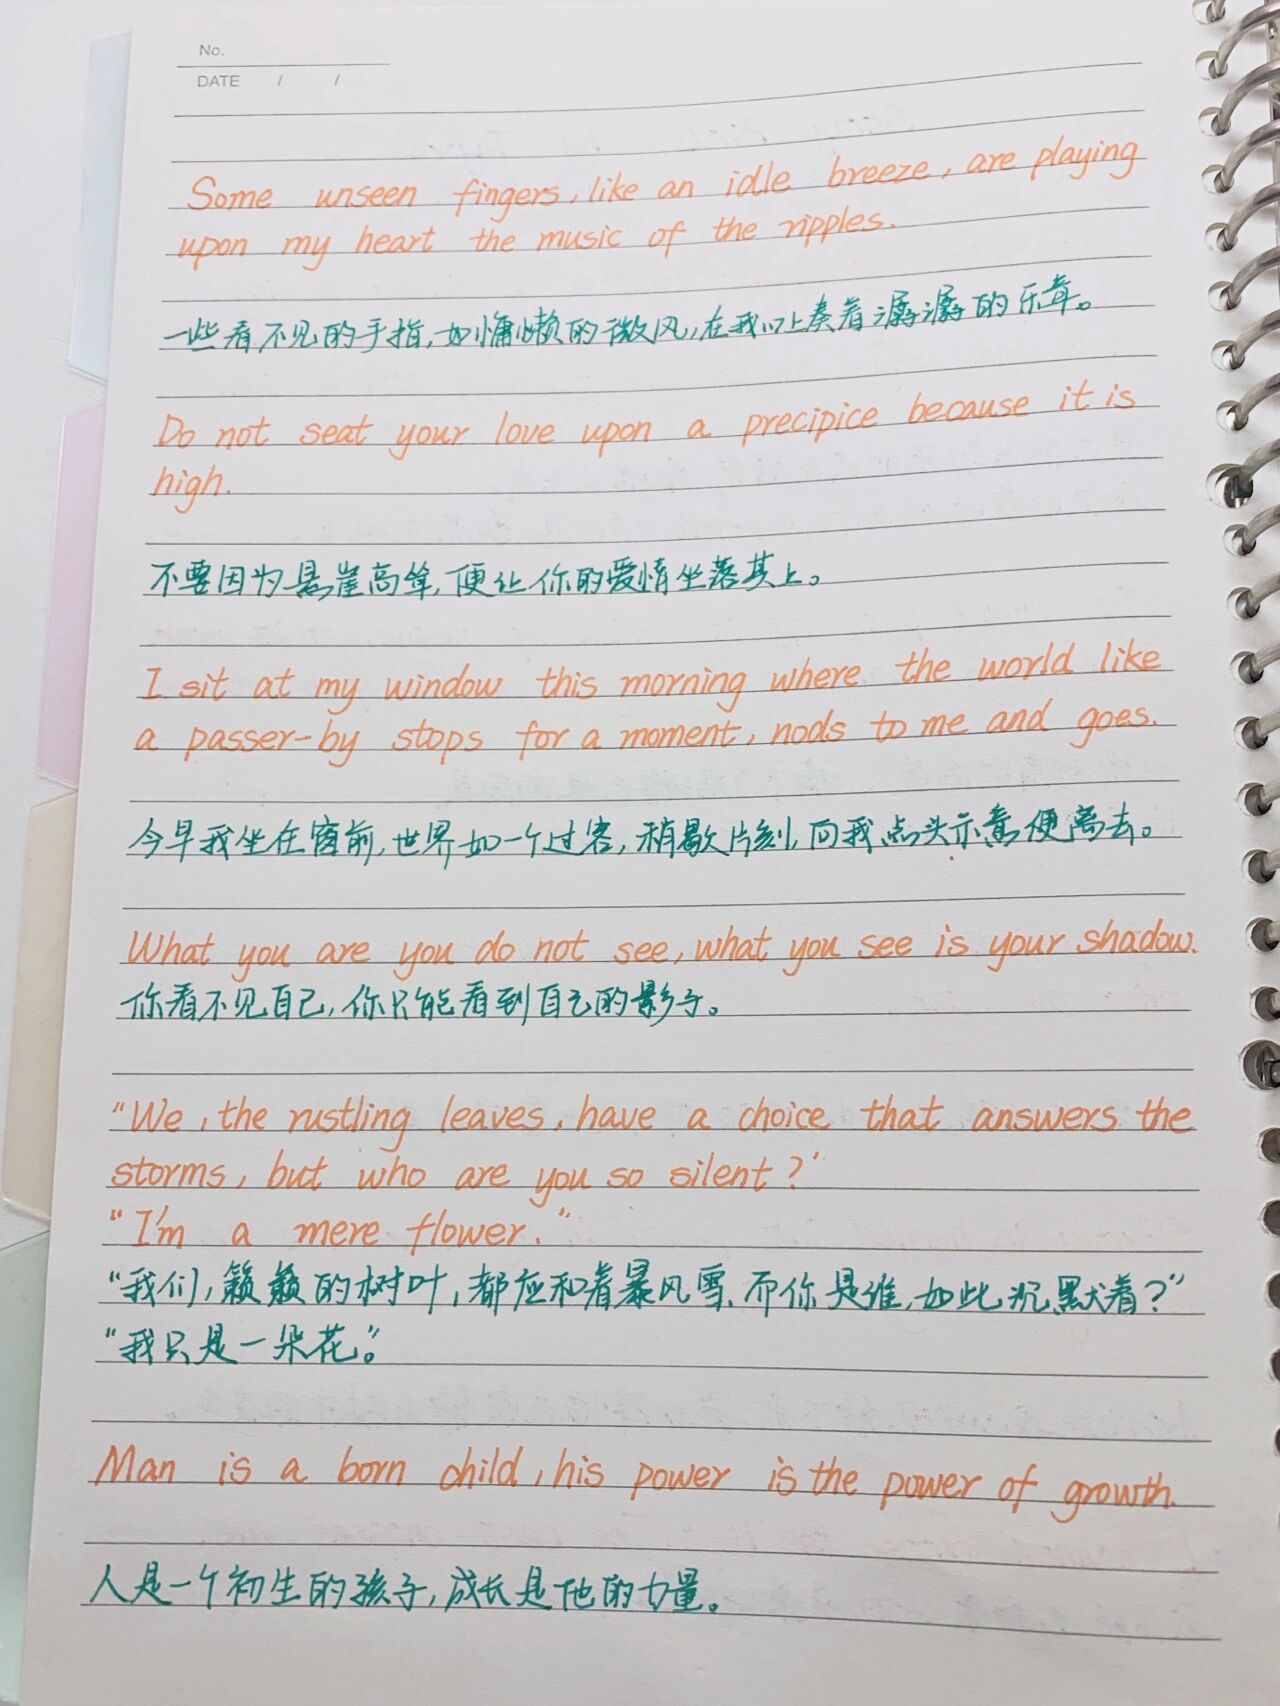 No.
DATE / /
Some unseen fingers, like an idle breeze, are playing
upon my heart the music of the ripples.
一些看不见的手指,如慵懒的微风,在我心上奏着潺潺的乐章。
Do not seat your love upon a precipice because it is
high.
不要因为悬崖高耸,便让你的爱情坐落其上。
I sit at my window this morning where the world like
a passer-by stops for a moment, nods to me and goes.
今早我坐在窗前,世界如一个过客,稍歇片刻,向我点头示意便离去。
What you are you do not see, what you see is your shadow.
你看不见自己,你只能看到自己的影子。
"We, the rustling leaves, have a choice that answers the
storms, but who are you so silent?"
"I'm a mere flower."
"我们,簌簌的树叶,都应和着暴风雪、而你是谁,如此沉默着?"
"我只是一朵花。"
Man is a born child, his power is the power of growth.
人是一个初生的孩子,成长是他的力量。